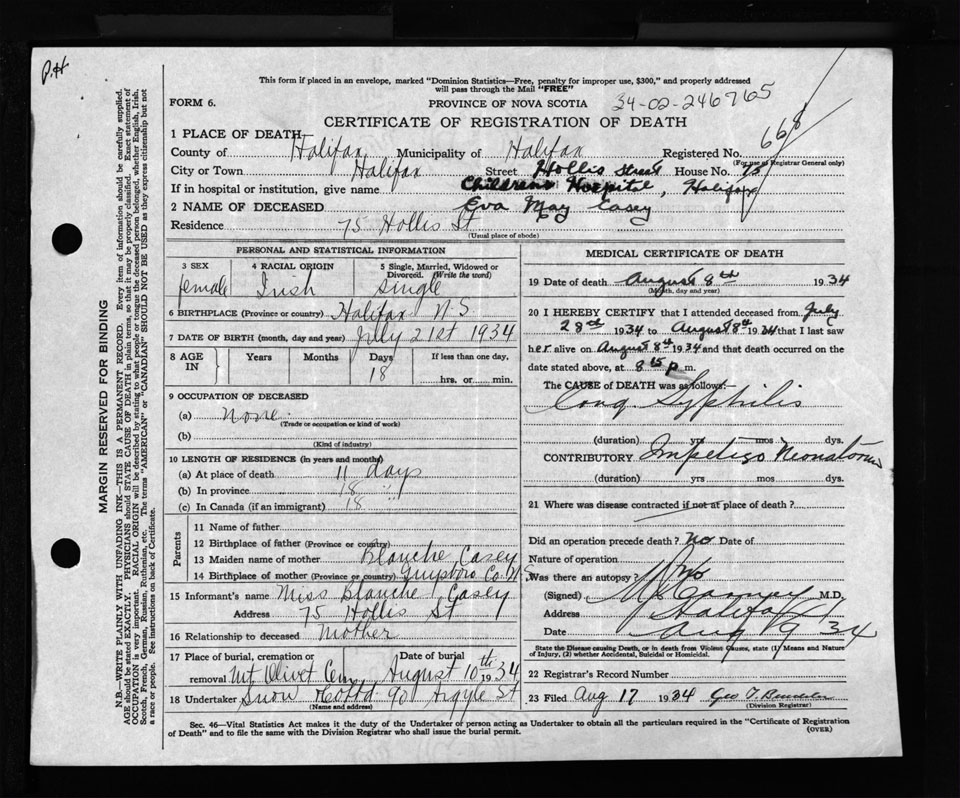 P.H
This form if placed in an envelope, marked "Dominion Statistics—Free, penalty for improper use, $300," and properly addressed
will pass through the Mail "FREE"
FORM 6.
PROVINCE OF NOVA SCOTIA
34-02-246765
CERTIFICATE OF REGISTRATION OF DEATH
668
1 PLACE OF DEATH
County of Halifax Municipality of Halifax Registered No.
(For use of Registrar General only)
City or Town Halifax Street Hollis Street House No. 75
If in hospital or institution, give name Children's Hospital, Halifax
2 NAME OF DECEASED Eva May Casey
Residence 75 Hollis St
(Usual place of abode)
PERSONAL AND STATISTICAL INFORMATION
3 SEX 4 RACIAL ORIGIN 5 Single, Married, Widowed or Divorced. (Write the word)
female Irish Single
6 BIRTHPLACE (Province or country) Halifax N S
7 DATE OF BIRTH (month, day and year) July 21st 1934
8 AGE IN Years Months Days If less than one day,
18 hrs. or min.
9 OCCUPATION OF DECEASED
(a) none.
(Trade or occupation or kind of work)
(b)
(Kind of industry)
10 LENGTH OF RESIDENCE (in years and months)
(a) At place of death 11 days
(b) In province 18 "
(c) In Canada (if an immigrant) 18
Parents
11 Name of father
12 Birthplace of father (Province or country)
13 Maiden name of mother Blanche Casey
14 Birthplace of mother (Province or country) Co. N.S
15 Informant's name Miss Blanche Casey
Address 75 Hollis St
16 Relationship to deceased Mother
17 Place of burial, cremation or Date of burial
removal Mt Olivet Cem, August 10th 1934
18 Undertaker Snow & Co Ltd 90 Argyle St
(Name and address)
MEDICAL CERTIFICATE OF DEATH
19 Date of death August 8th 1934
(Month, day and year)
20 I HEREBY CERTIFY that I attended deceased from July
28th 1934 to August 8th 1934 that I last saw
her alive on August 8th 1934 and that death occurred on the
date stated above, at 8 15 p m.
The CAUSE of DEATH was as follows:
Cong Syphilis
(duration) yrs mos dys.
CONTRIBUTORY Impetigo Neonatorum
(duration) yrs mos dys.
21 Where was disease contracted if not at place of death?
Did an operation precede death? No Date of
Nature of operation
Was there an autopsy? No
(Signed) M.D.
Address Halifax
Date Aug 9 34
State the Disease causing Death, or in death from Violent Causes, state (1) Means and Nature
of Injury, (2) whether Accidental, Suicidal or Homicidal.
22 Registrar's Record Number
23 Filed Aug 17 1934 Geo T.
(Division Registrar)
Sec. 46—Vital Statistics Act makes it the duty of the Undertaker or person acting as Undertaker to obtain all the particulars required in the "Certificate of Registration
of Death" and to file the same with the Division Registrar who shall issue the burial permit.
(OVER)
MARGIN RESERVED FOR BINDING
N.B.—WRITE PLAINLY WITH UNFADING INK—THIS IS A PERMANENT RECORD. Every item of information should be carefully supplied.
AGE should be stated EXACTLY. PHYSICIANS should STATE CAUSE OF DEATH in plain terms, so that it may be properly classified. Exact statement of
OCCUPATION is very important. RACIAL ORIGIN will be described by stating to what people or tongue the deceased person belonged, whether English, Irish,
Scotch, French, German, Russian, Ruthenian, etc. The terms "AMERICAN" or "CANADIAN" SHOULD NOT BE USED as they express citizenship but not
a race or people. See instructions on back of Certificate.